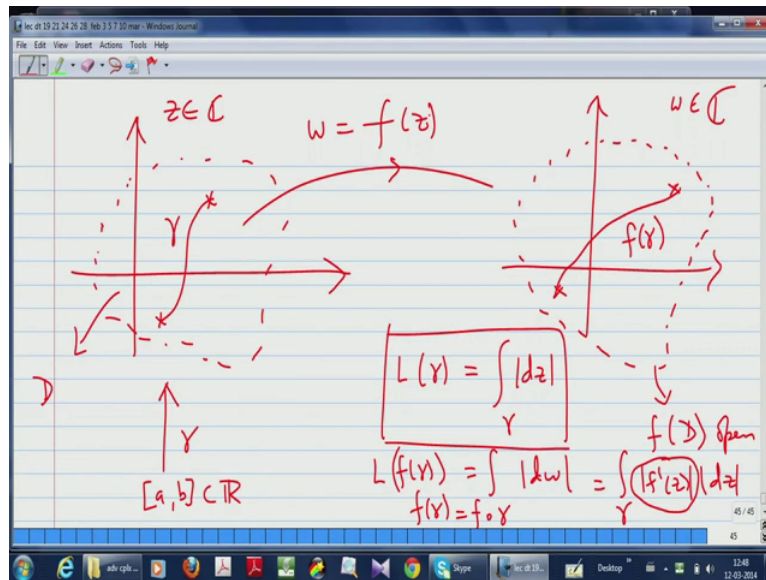 lec dt 19 21 24 26 28 feb 3 5 7 10 mar - Windows Journal
File Edit View Insert Actions Tools Help
z ∈ ℂ
w = f(z)
w ∈ ℂ
γ
f(γ)
D
L(γ) = ∫_γ |dz|
f(D) open
γ
[a, b] ⊂ ℝ
L(f(γ)) = ∫_{f(γ) = f∘γ} |dw| = ∫_γ |f'(z)| |dz|
45 / 45
45
adv cplx ...
Skype
lec dt 19...
Desktop
12:48
12-03-2014